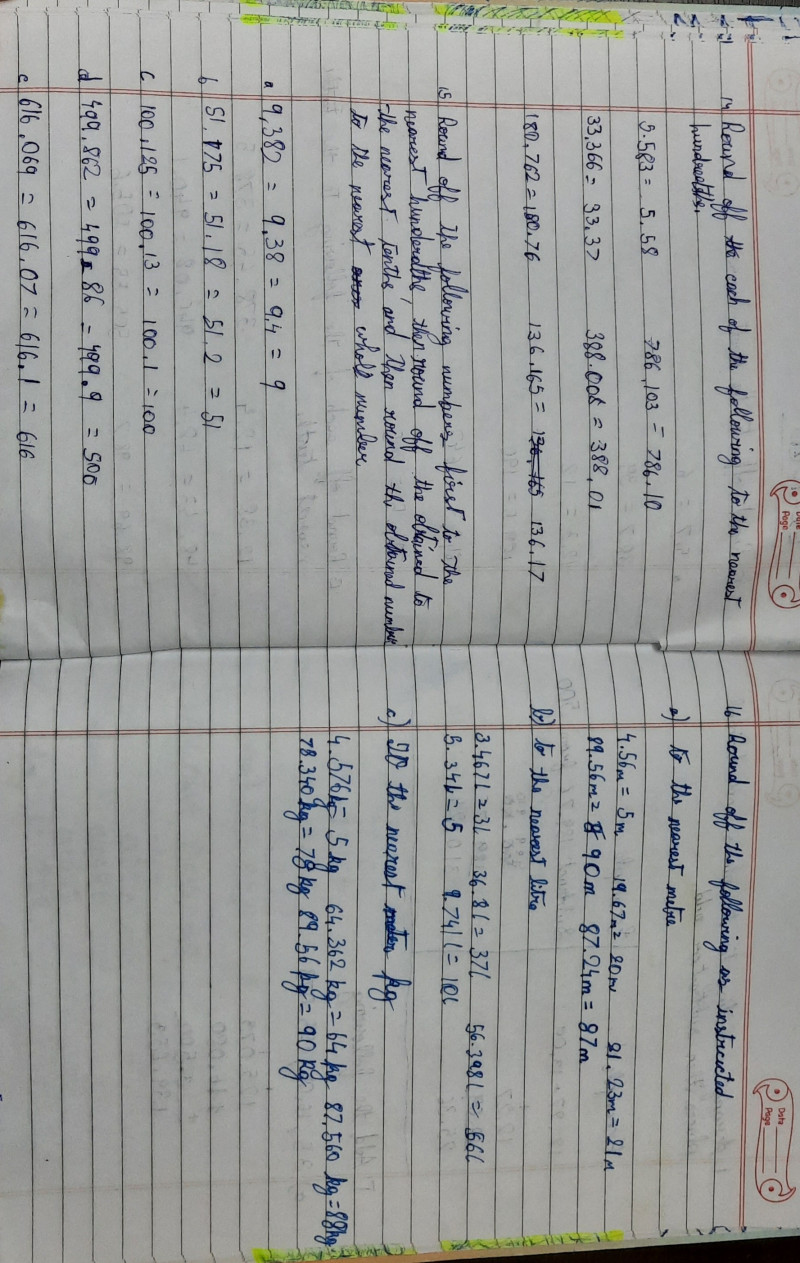 Date
Page
14 Round off the each of the following to the nearest
hundredths.
5.583 = 5.58 786,103 = 786.10
33,366 = 33.37 388.008 = 388,01
180,762 = 180.76 136.165 = 136,165 136.17
15 Round off the following numbers first to the
nearest hunderdths, then round off the obtained to
the nearest tenths and then round the obtained number
to the nearest whole number
a 9,382 = 9,38 = 9.4 = 9
b 51.175 = 51.18 = 51.2 = 51
c 100,125 = 100,13 = 100.1 = 100
d 499,862 = 499.86 = 499.9 = 500
e 616,069 = 616.07 = 616.1 = 616
Date
Page
16 Round off the following as instructed
a) to the nearest metre
4.56m = 5m 19.67m = 20m 21.23m = 21m
89.56m = 90m 87.24m = 87m
b) to the nearest litre
3.467l = 3l 36.8l = 37l 56.398l = 56l
5.34l = 5 9.741l = 10l
c) To the nearest kg
4.576kg = 5kg 64.362 kg = 64kg 87.560 kg = 88kg
78.340kg = 78kg 89.56kg = 90kg